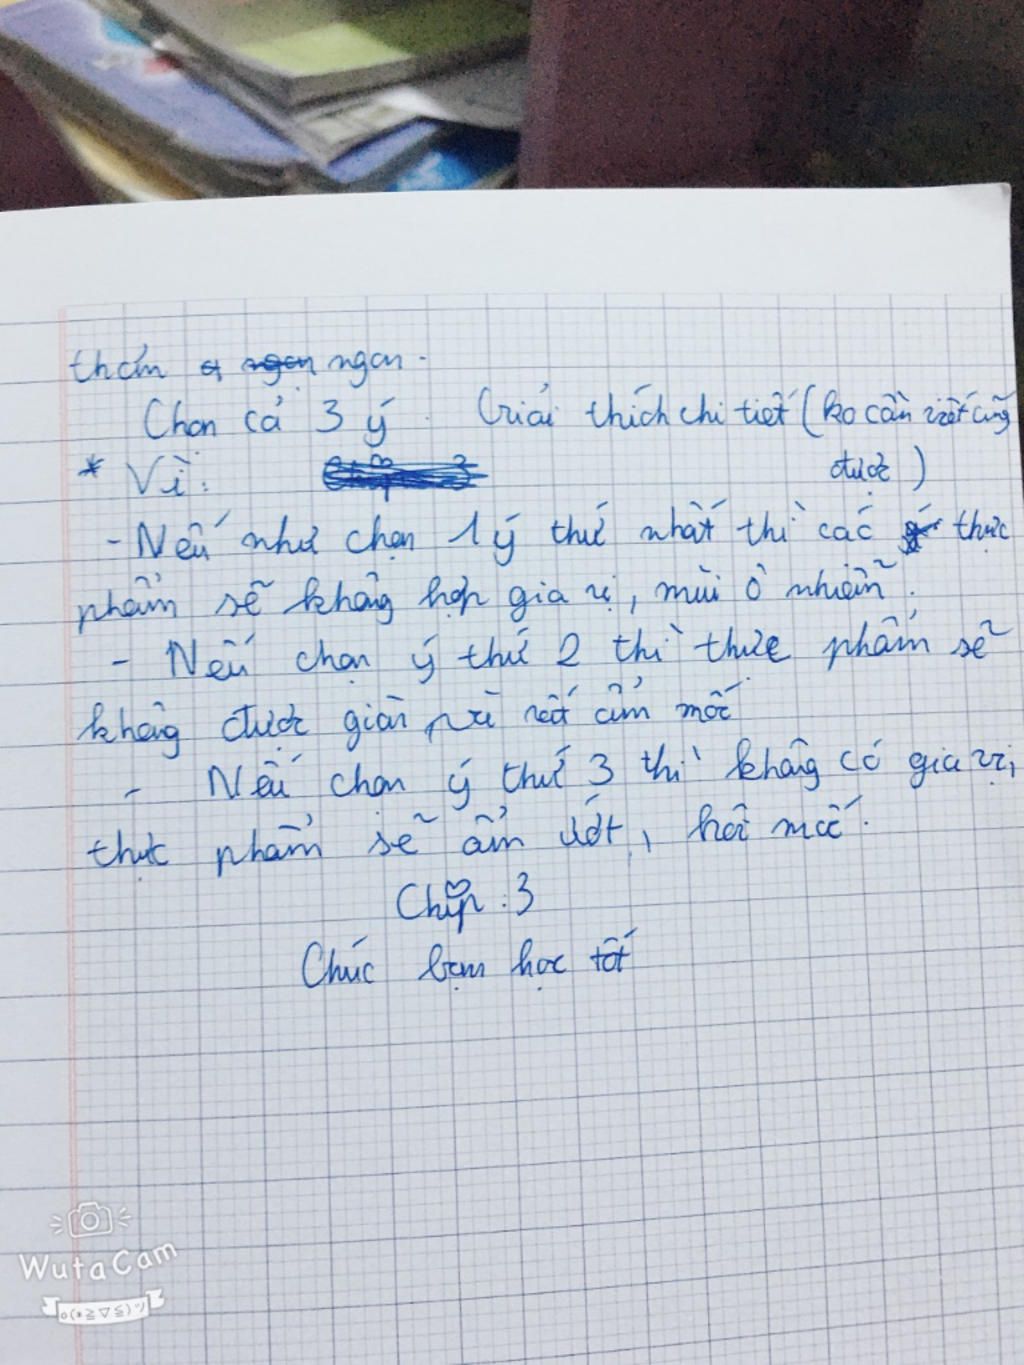 thơm ngon.
Chọn cả 3 ý. Giải thích chi tiết (ko cần viết cũng
được)
* Vì:
- Nếu như chọn 1 ý thứ nhất thì các thực
phẩm sẽ không hợp gia vị, mùi ô nhiễm.
- Nếu chọn ý thứ 2 thì thực phẩm sẽ
không được giàn và rất ẩm mốc
- Nếu chọn ý thứ 3 thì không có gia vị,
thực phẩm sẽ ẩm ướt, hôi mốc.
Chip :3
Chúc bạn học tốt
WutaCam
o(*≧▽≦)ツ